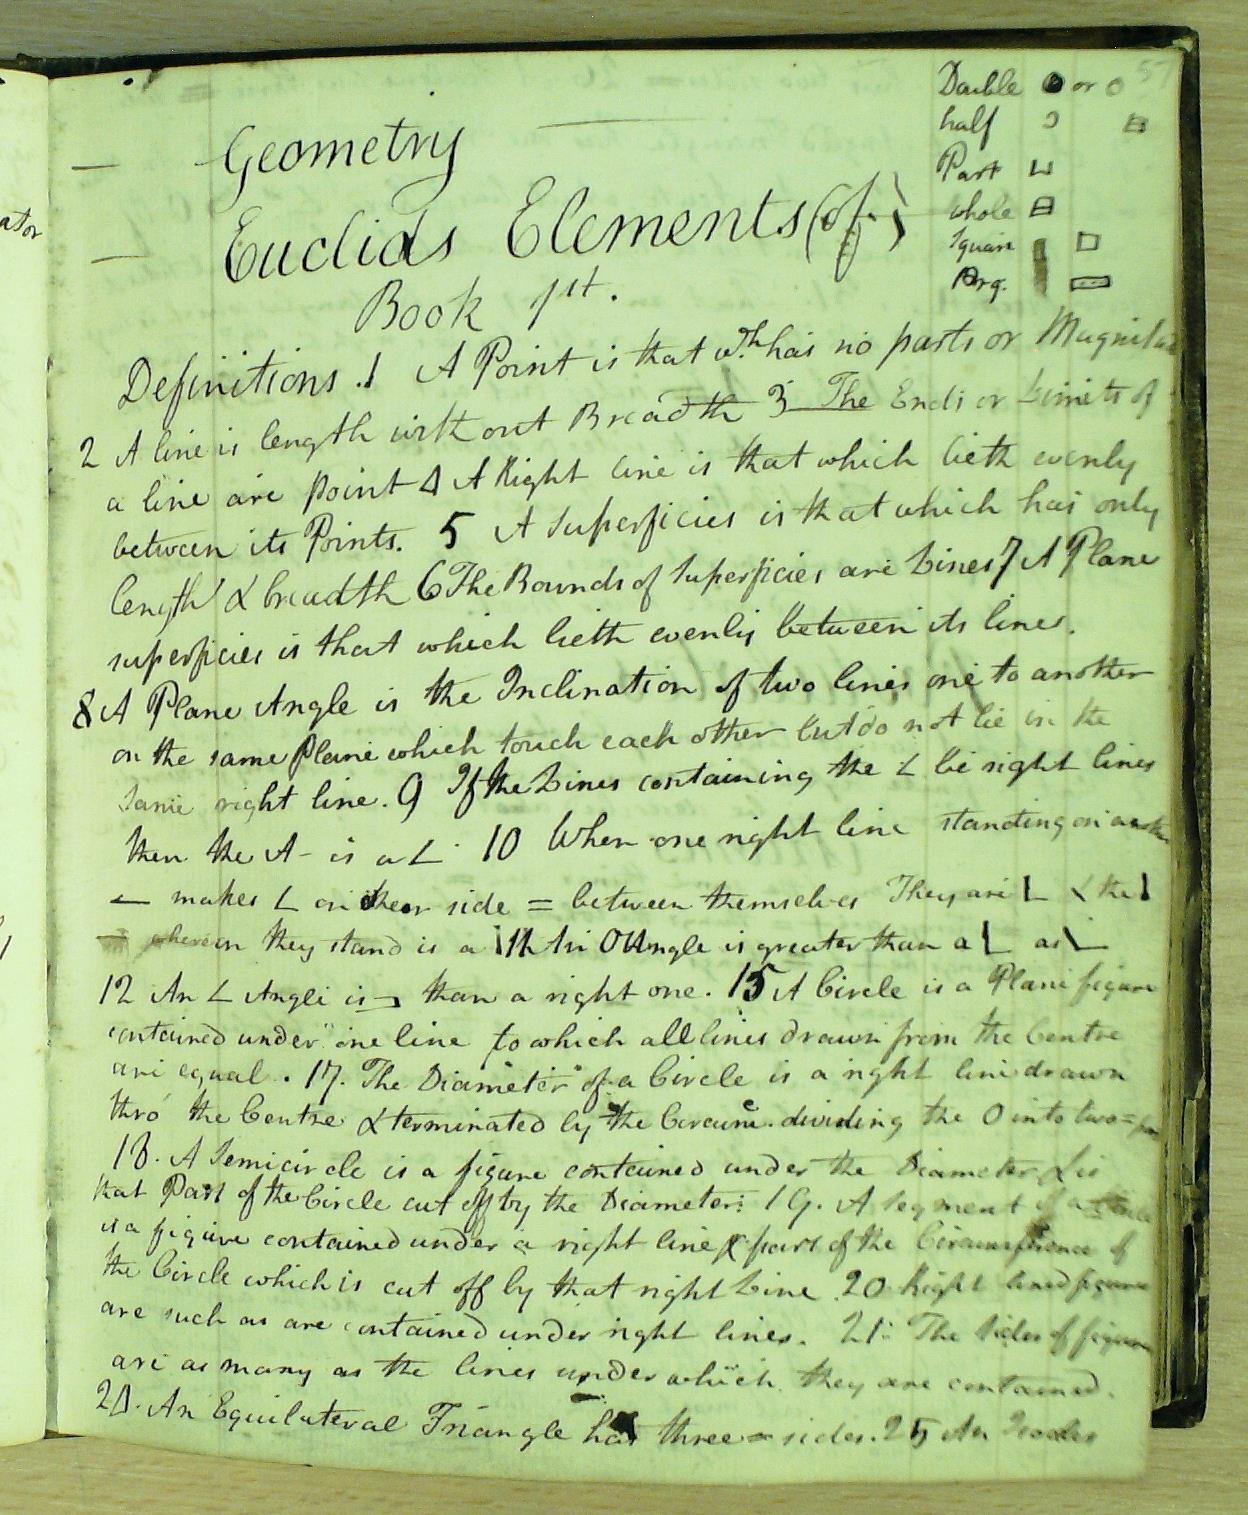 57
Double or
half
Part
whole
Square
Parg.
Geometry
Euclids Elements (of)
Book 1st.
Definitions .1 A Point is that wch has no parts or Magnitud
2 A line is length without Breadth 3 The Ends or Limits of
a line are point 4 A Right line is that which lieth evenly
between its Points. 5 A Superficies is that which has only
length & breadth 6 The Bounds of Superficies are Lines 7 A Plane
superficies is that which lieth evenly between its lines.
8 A Plane Angle is the Inclination of two lines one to another
on the same Plane which touch each other but do not lie in the
same right line. 9 If the Lines containing the ∠ be right lines
then the A- is a ∠ 10 When one right line standing on
— makes ∠ on either side = between themselves They are L & the
wherein they stand is a 11 An O Angle is greater than a L as
12 An ∠ Angle is than a right one. 15 A Circle is a Plane figure
contained under one line to which all lines drawn from the Centre
are equal. 17. The Diameter of a Circle is a right line drawn
thro' the Centre & terminated by the Circume. dividing the O into two =
18. A Semicircle is a figure contained under the Diameter &
that Part of the Circle cut off by the Diameter: 19. A Segment of a
is a figure contained under a right line & part of the Circumference of
the Circle which is cut off by that right Line 20 Right lined figures
are such as are contained under right lines. 21. The Sides of figures
are as many as the lines under which they are contained.
24. An Equilateral Triangle has three = sides. 25 An
ator